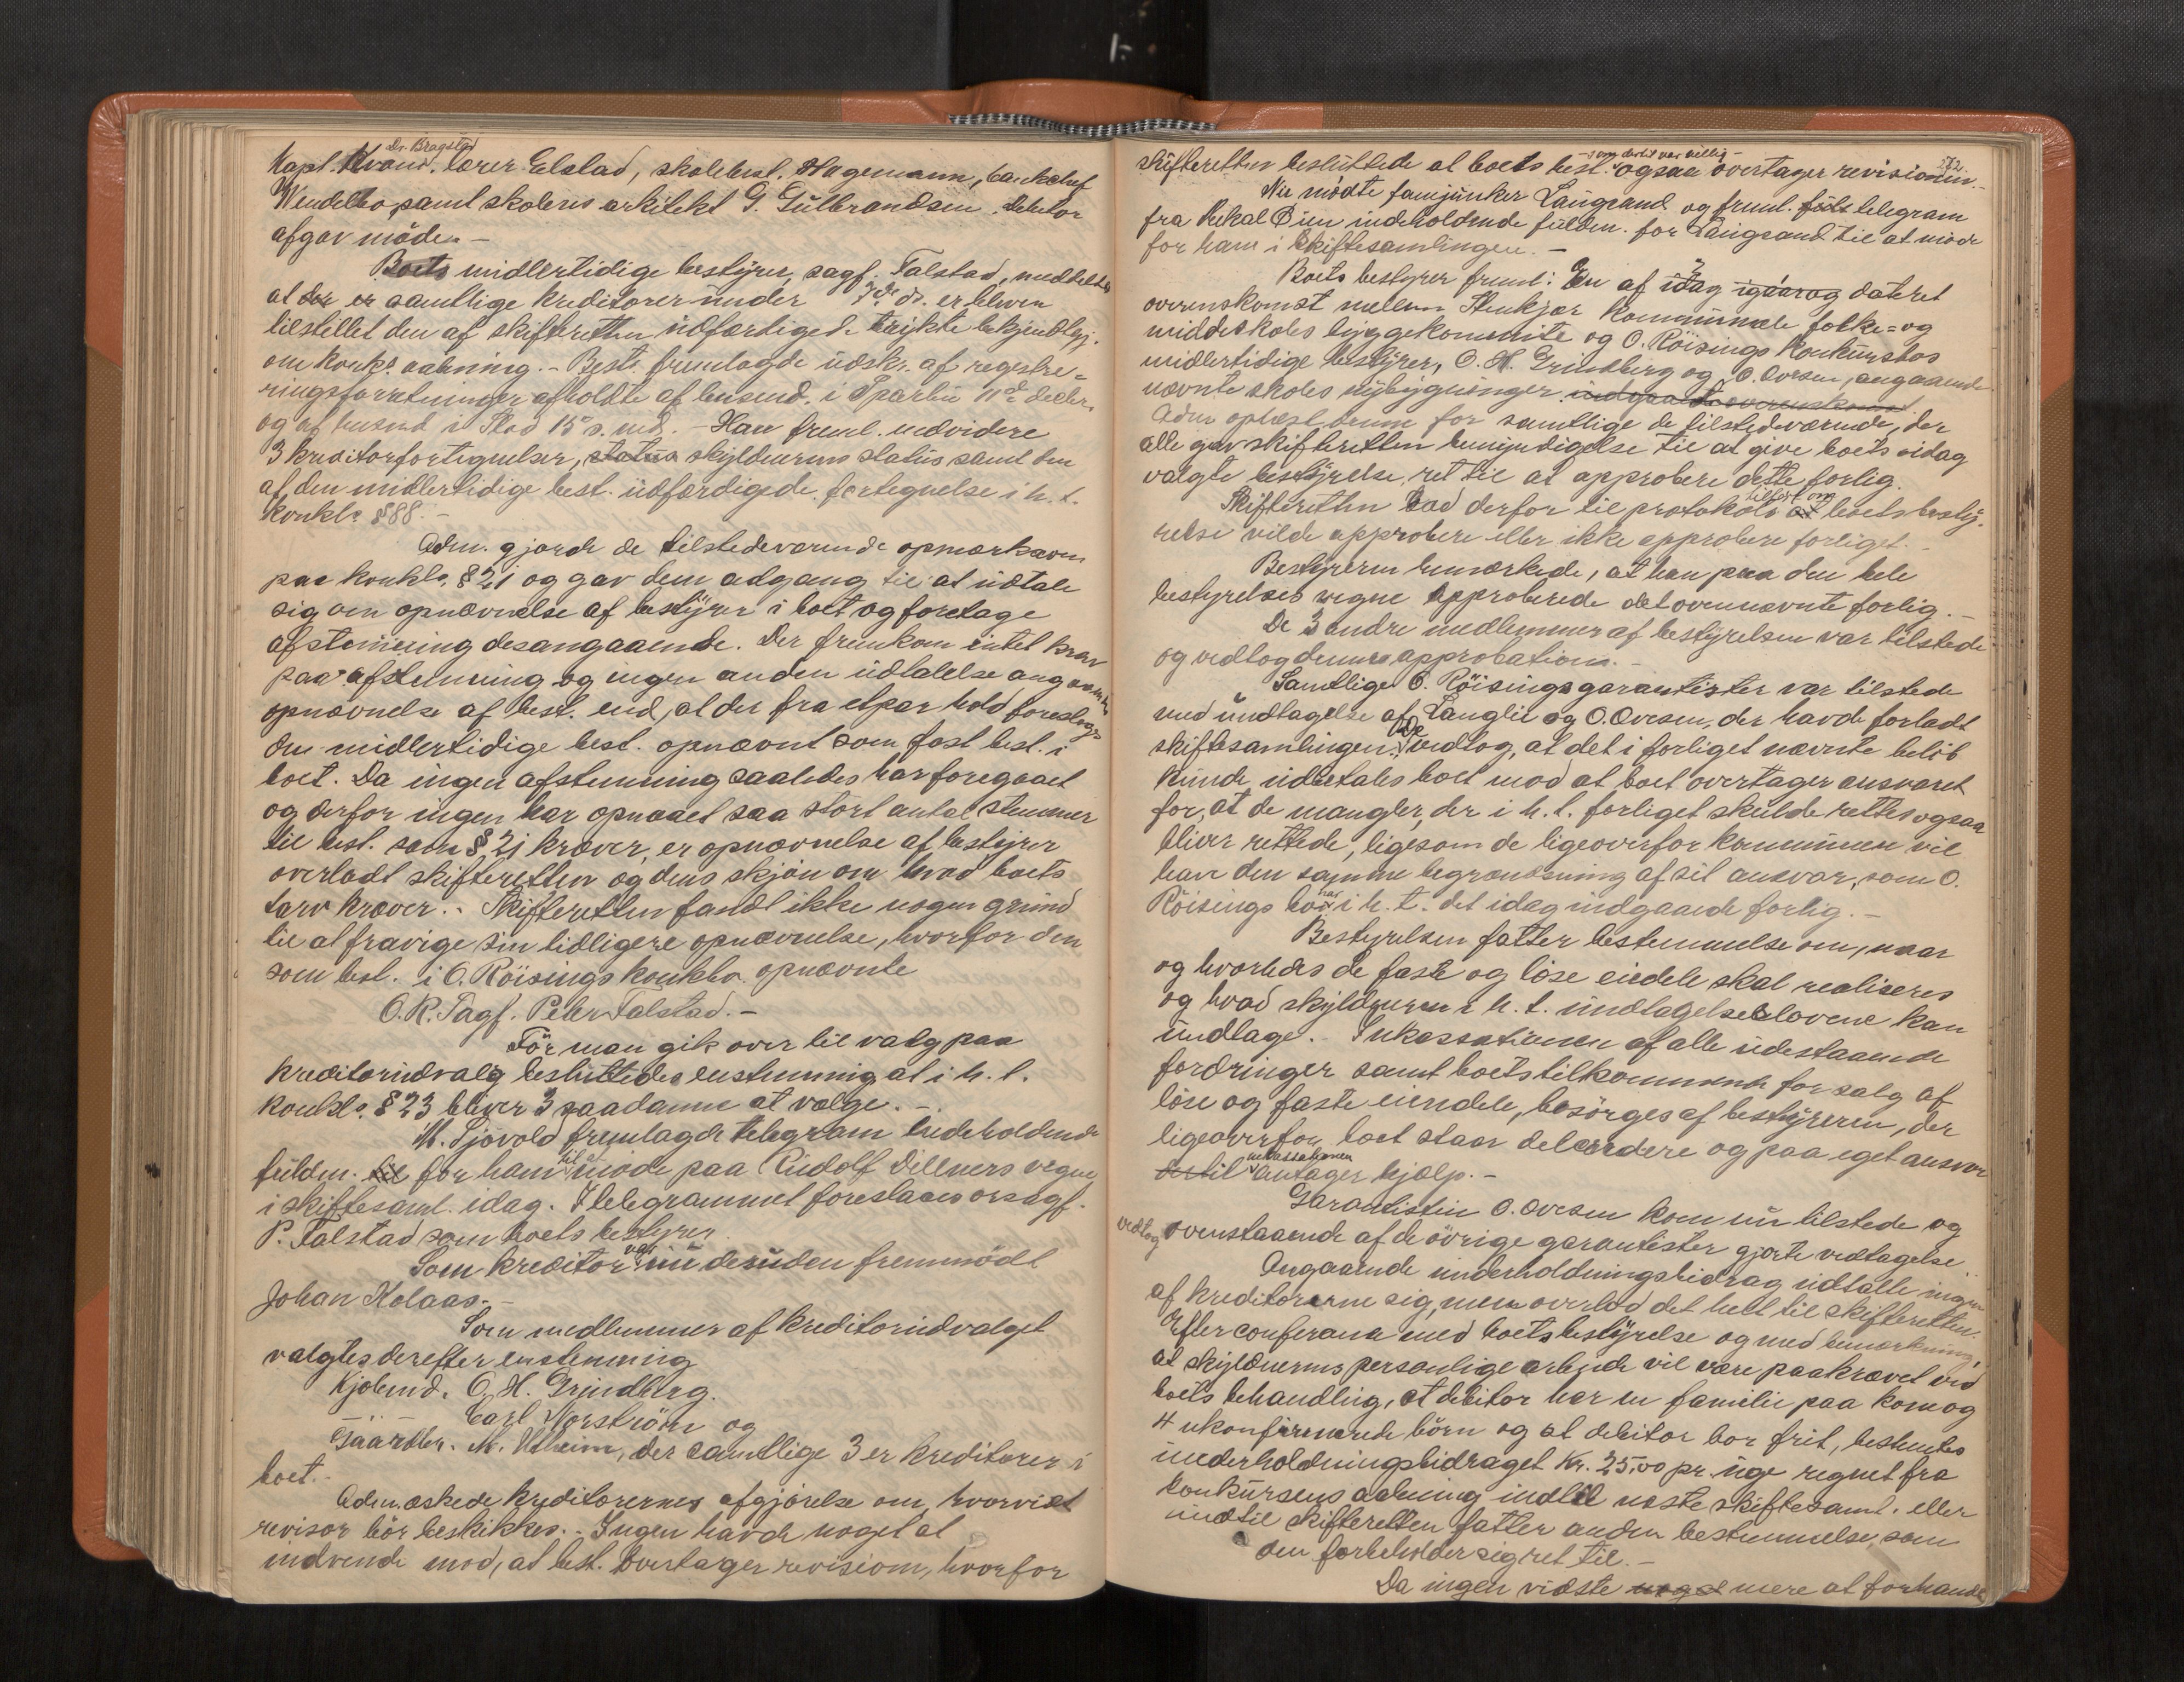 Dr. Bragstad
Kapt. Kvand. lærer Elstad, skolebest. Hagemann, bankchef
Wendelbo samt skolens arkitekt G. Gulbrandsen. Debitor
afgav møde. –
Boets midlertidige bestyrer, sagf. Falstad, meddelte
at der er samtlige kreditorer under 7de ds. er bleven
tilstillet den af skifteretten udfærtigede trykte bekjendtgj.
om konks. aabning. – Best. fremlagde udskr. af registre-
ringsforretninger afholdte af lensmd. i Sparbu 11te decbr.
og af lensmd i Stod 15 s. md. – Han freml. endvidere
3 kreditorfortegnelser, status skyldnerens status samt den
af den midlertidige best. udfærdigede fortegnelse i h. t.
konkl. § 88. –
Adm. gjorde de tilstedeværende opmerksom
paa konkl. § 21 og gav dem adgang til at udtale
sig om opnævnelse af bestyrer i boet og foretage
afstemning desangaaende. Der fremkom intet krav
paa afstemning og ingen anden udtalelse angaaende
opnævnelse af best. end, at der fra etpar hold foresloges
den midlertidige best. opnævnt som fast best. i
boet. Da ingen afstemning saaledes har foregaaet
og derfor ingen har opnaaet saa stort antal stemmer
til best. som § 21 kræver, er opnævnelse af bestyrer
overladt skifteretten og dens skjøn om hvad boets
tarv kræver. – Skifteretten fandt ikke nogen grund
til at fravige sin tidligere opnævnelse, hvorfor den
som best. i O. Röisings konkbo. opnævnte
O.R. Sagf. Peter Falstad. –
Før man gik over til valg paa
kreditorudvalg besluttedes enstemmig at i h. t.
konkl. § 23 bliver 3 saadanne at vælge. –
M. Sjövold fremlagde telegram indeholdende
fuldm. til for ham til at møde paa Rudolf Dillners vegne
i skiftesaml. idag. I telegrammet foreslaaes orsagf.
P. Falstad som boets bestyrer.
Som kreditor var nu desuden fremmødt
Johan Kolaas. –
Som medlemmer af kreditorudvalget
valgtes derefter enstemmig
Kjøbmd. O. H. Grindberg.
–"– Carl Norström og
Gaardbr. M. Utheim, der samtlige 3 er kreditorer i
boet. –
Adm. æskede kreditorernes afgjørelse om, hvorvidt
revisor bør beskikkes. – Ingen havde noget at
indvende mod, at best. overtager revisionen, hvorfor
– som dertil var villig –
skifteretten besluttede at boets best. ogsaa overtager revisionen.
Nu mødte fanejunker Langsand og freml. fulde telegram
fra Mekal Øien indeholdende fuldm. for Langsand til at møde
for ham i skiftesamlingen. –
Boets bestyrer freml: En af idag igaar og dateret
overenskomst mellem Stenkjær kommunale folke- og
middelskoles byggekomite og O. Röisings konkursbos
midlertidige bestyrer, O. H. Grindberg og O. Ovesen, angaaende
nævnte skoles nybygninger indgaaede overenskomst.
Adm oplæste denne for samtlige de tilstedeværende, der
alle gav skifteretten bemyndigelse til at give boets idag
valgte bestyrelse ret til at approbere dette forlig.
Skifteretten bad derfor til protokols tilført om at boets besty-
relse vilde approbere eller ikke approbere forliget. –
Bestyreren bemærkede, at han paa den hele
bestyrelses vegne approberede det ovennævnte forlig. –
De 3 andre medlemmer af bestyrelsen var tilstede
og vedtog denne approbation. –
Samtlige O. Röisings garantister var tilstede
med undtagelse af Langlie og O. Ovesen, der havde forladt
skiftesamlingen. De vedtog, at det i forliget nævnte beløb
kunde udbetales boet mod at boet overtager ansvaret
for, at de mangler, der i h. t. forliget skulde rettes ogsaa
bliver rettede, ligesom de ligeoverfor kommunen vil
have den samme begrændsning af sit ansvar, som O.
Röisings bo har i h. t. det idag indgaaede forlig. –
Bestyrelsen fatter bestemmelse om, naar
og hvorledes de faste og løse eiendele skal realiseres
og hvad skyldneren i h. t. undtagelseslovene kan
undtage. – Inkassationen af alle udestaaende
fordringer samt boets tilkommende for salg af
løse og faste eiendele, besørges af bestyreren, der
ligeoverfor boet staar delcredere og paa eget ansvar
dertil inkassationen antager hjælp. –
Garantisten O. Ovesen kom nu tilstede og
vedtog ovenstaaende af de øvrige garantister gjorte vedtagelse. –
Angaaende underholdningsbidrag udtalte ingen
af kreditorerne sig, men overlod det helt til skifteretten.
Efter conferance med boets bestyrelse og med bemærkning,
at skyldnerens personlige arbeide vil være paakrævet ved
boets behandling, at debitor har en familie paa kone og
4 ukonfirmerede børn og at debitor bor frit, bestemtes
underholdningsbidraget Kr. 25,00 pr. uge regnet fra
konkursens aabning indtil næste skiftesaml. eller
indtil skifteretten fatter anden bestemmelse, som
den forbeholder sig ret til. –
Da ingen vidste noget mere at forhandle